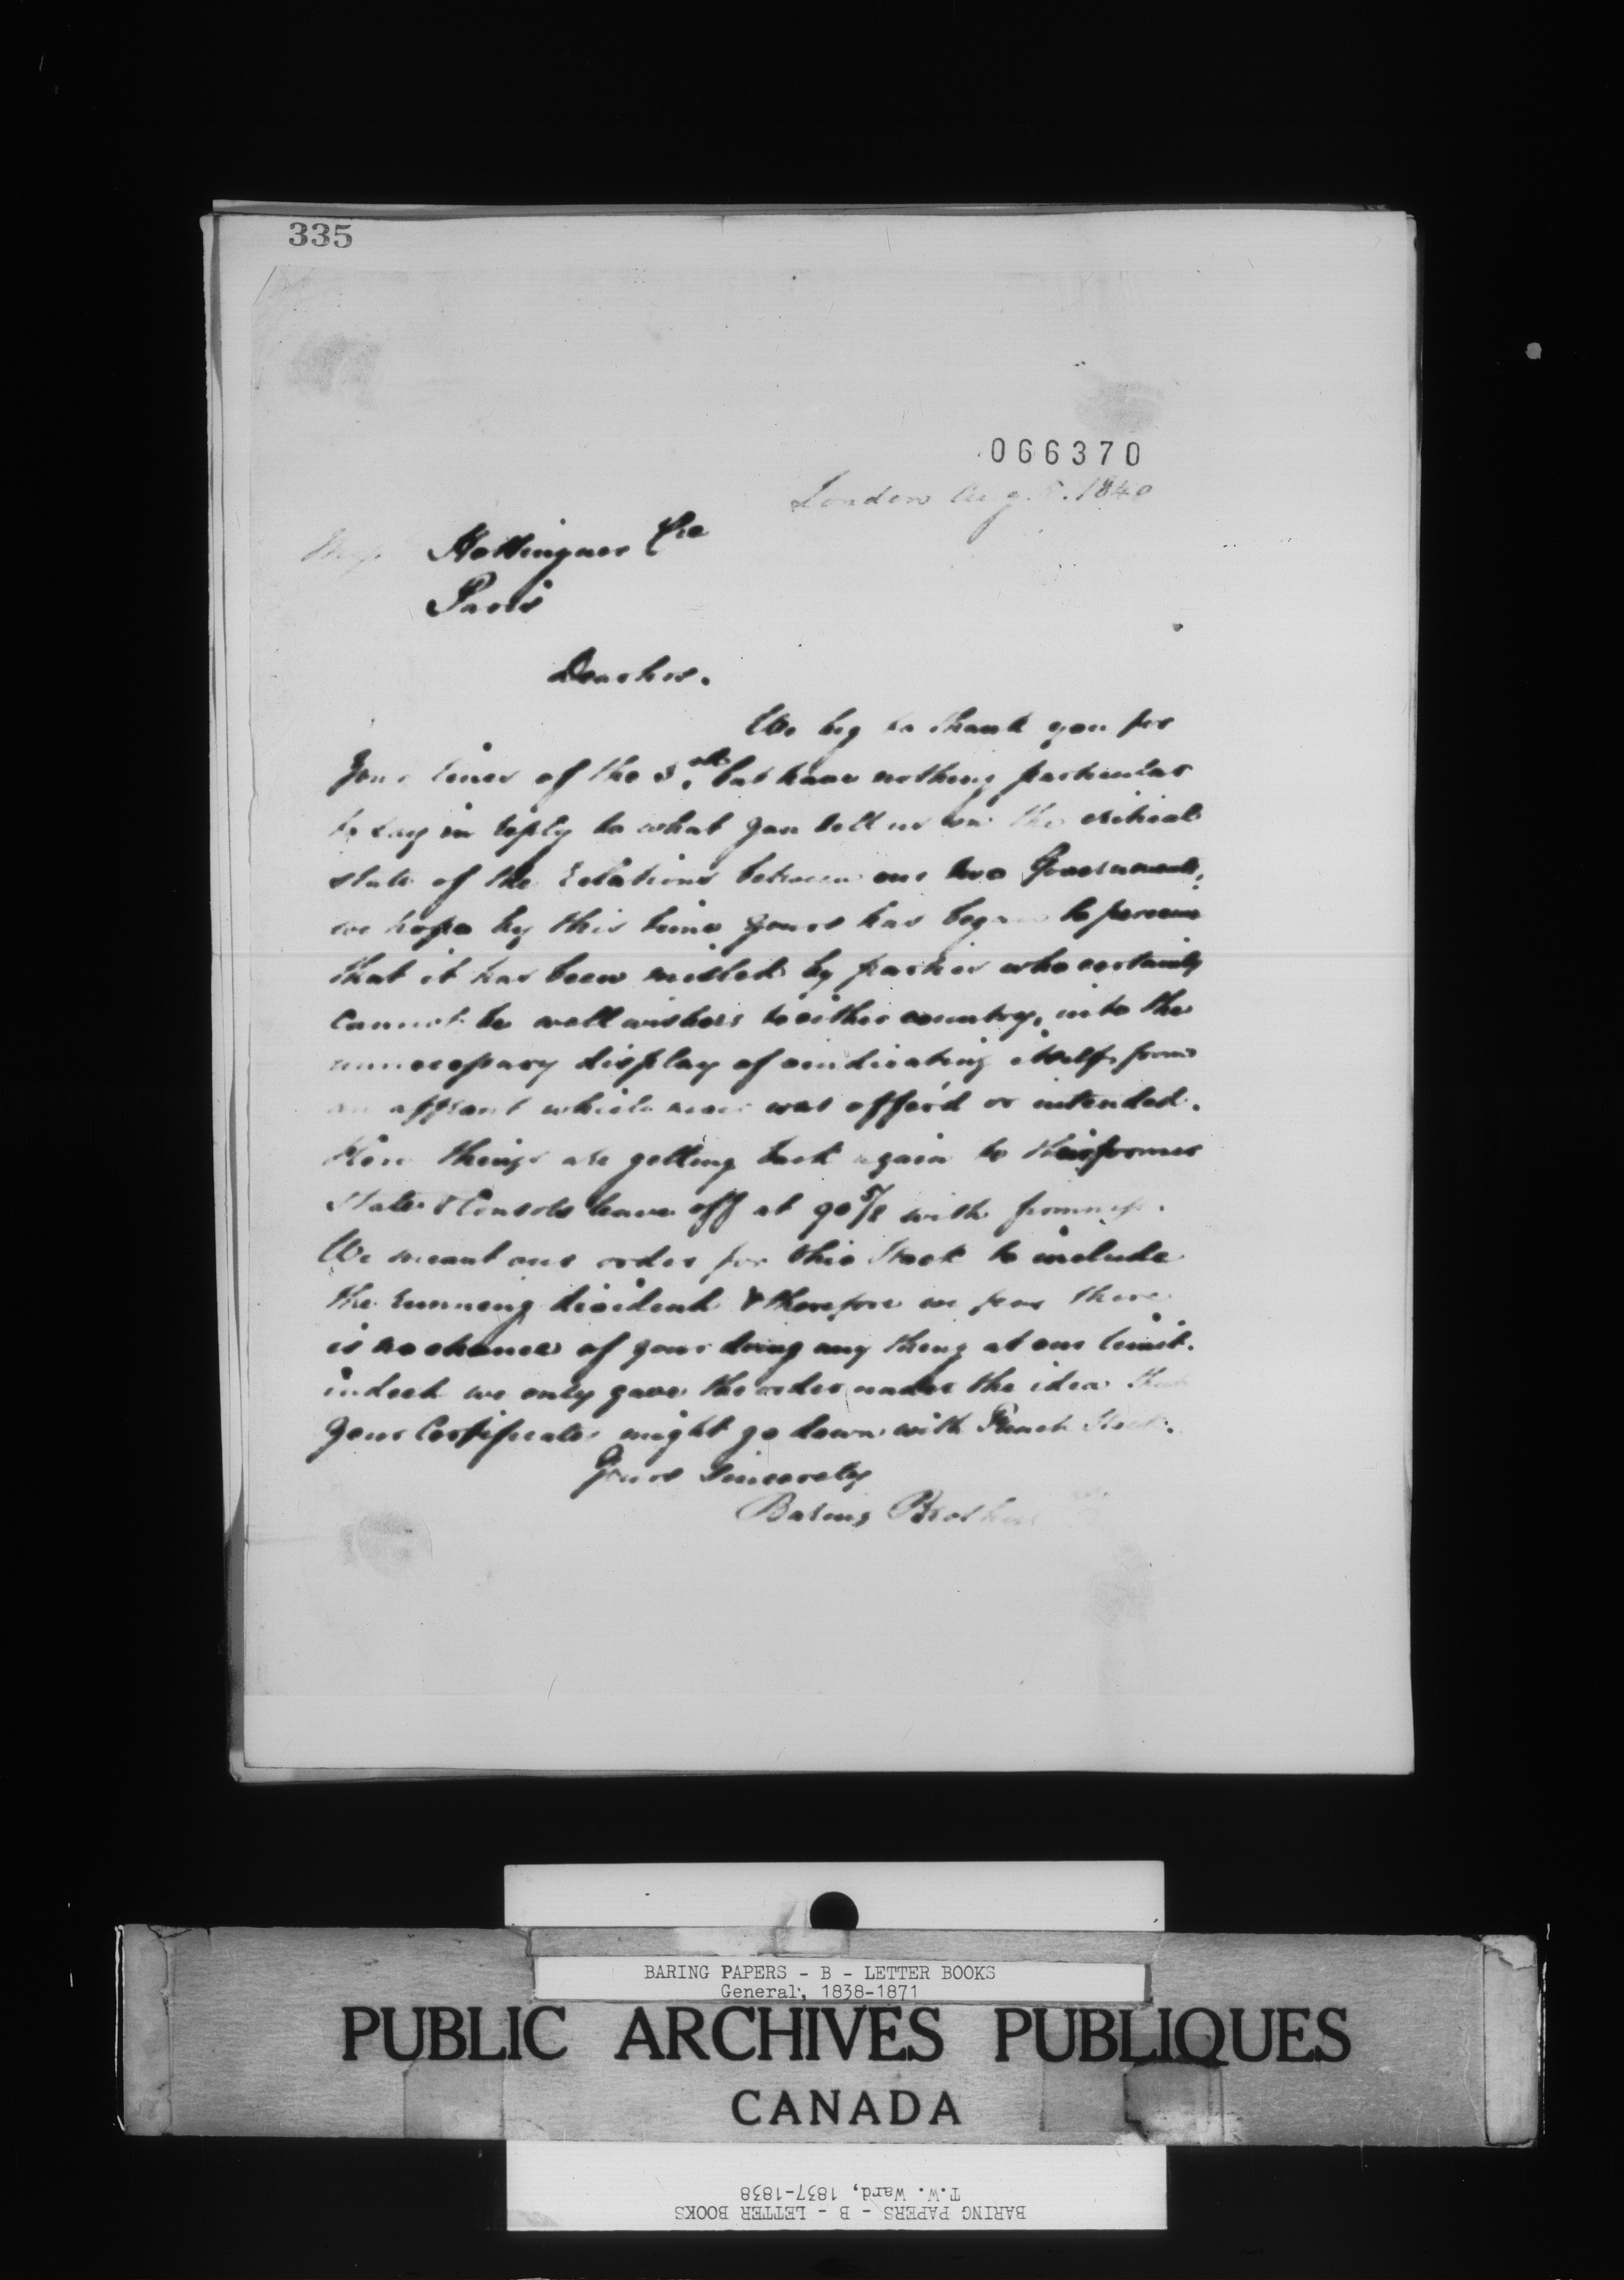 335
066370
London Aug. 5. 1840
Mess. Hottinguer & Co
Paris
Dear Sirs.
We beg to thank you for
your lines of the 3. but have nothing particular
to say in reply to what you tell us on the critical
state of the relations between our two Governments,
we hope by this time yours has began to perceive
that it has been misled by parties who certainly
cannot be well wishers to either country, into the
unnecessary display of vindicating itself from
an affront which never was offer'd or intended.
Here things are getting back again to their former
State & Consols leave off at 90 5/8 with firmness.
We meant our order for this Stock to include
the running dividend & therefore we fear there
is no chance of your doing any thing at our limit.
indeed we only gave the order under the idea that
your Certificates might go down with French Stock.
Yours Sincerely
Baring Brothers
BARING PAPERS - B - LETTER BOOKS
General, 1838-1871
PUBLIC ARCHIVES PUBLIQUES
CANADA
BARING PAPERS - B - LETTER BOOKS
T.W. Ward, 1837-1838